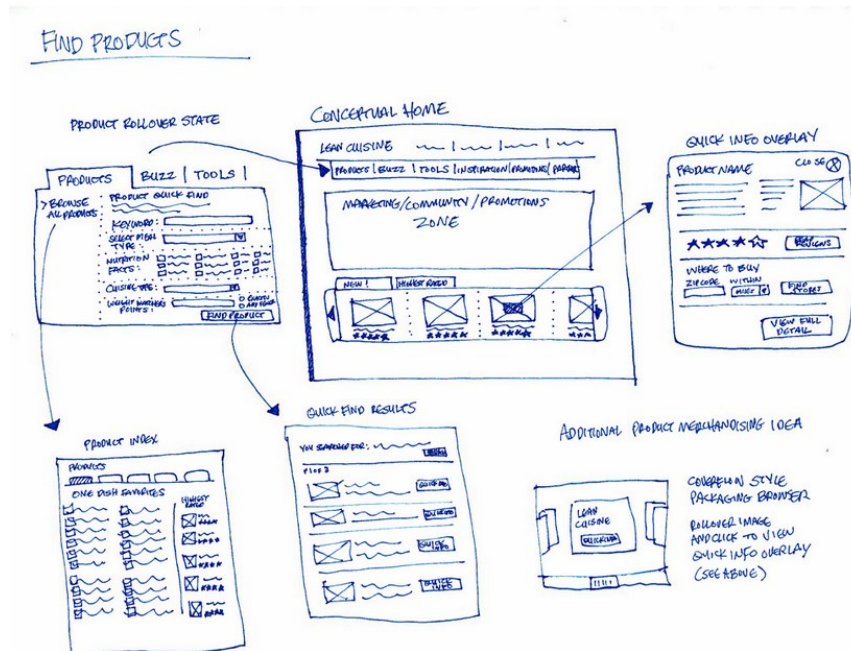 FIND PRODUCTS
PRODUCT ROLLOVER STATE
PRODUCTS | BUZZ | TOOLS |
> BROWSE
ALL PRODUCTS
PRODUCT QUICK FIND
KEYWORD:
SELECT MEAL
TYPE:
NUTRITION
FACTS:
CUISINE TYPE:
WEIGHT WATCHERS
POINTS:
FIND PRODUCT
CONCEPTUAL HOME
LEAN CUISINE
PRODUCTS | BUZZ | TOOLS | INSPIRATION | PROMOTIONS |
MARKETING/COMMUNITY/PROMOTIONS
ZONE
NEW!
HIGHEST RATED
QUICK INFO OVERLAY
PRODUCT NAME
CLOSE X
READ
REVIEWS
WHERE TO BUY
ZIPCODE WITHIN
MILES
FIND
STORES
VIEW FULL
DETAIL
PRODUCT INDEX
PRODUCTS
ONE DISH FAVORITES
HIGHEST
RATED
QUICK FIND RESULTS
YOU SEARCHED FOR:
QUICK INFO
QUICK INFO
QUICK
INFO
QUICK
INFO
ADDITIONAL PRODUCT MERCHANDISING IDEA
LEAN
CUISINE
QUICK INFO
COVERFLOW STYLE
PACKAGING BROWSER
ROLLOVER IMAGE
AND CLICK TO VIEW
QUICK INFO OVERLAY
(SEE ABOVE)